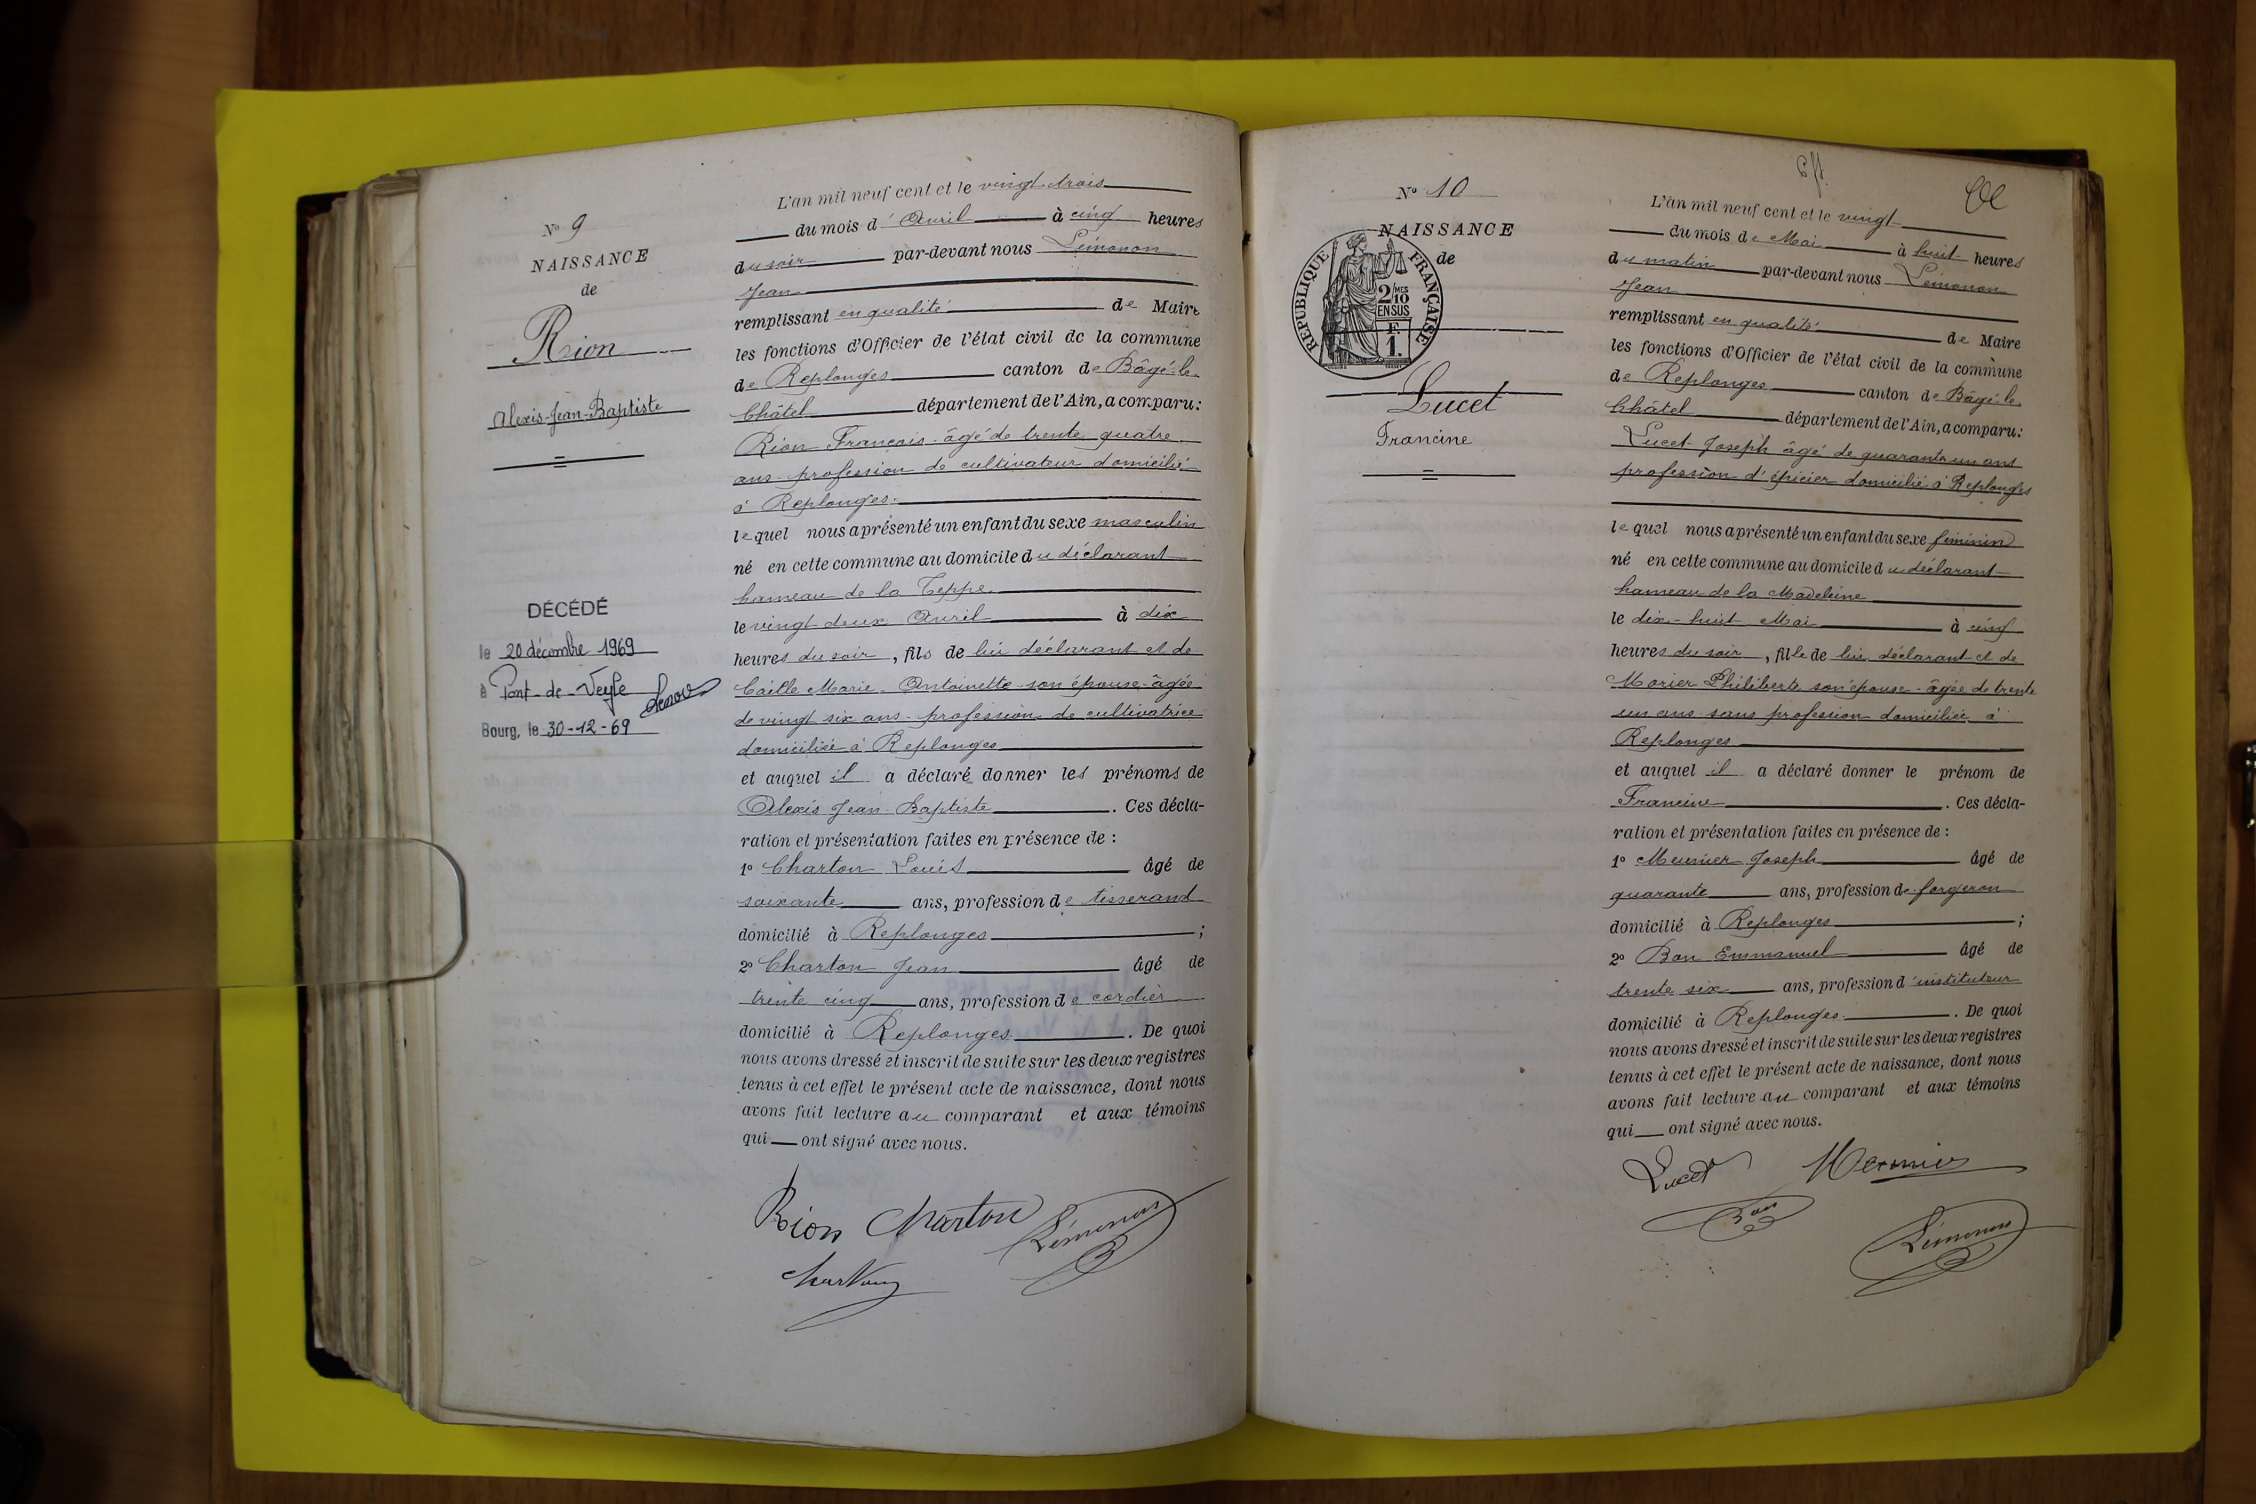 N° 9
NAISSANCE
de
Rion
Alexis-Jean-Baptiste
DÉCÉDÉ
le 20 décembre 1969
à Pont-de-Veyle
Bourg, le 30-12-69
L'an mil neuf cent et le vingt trois
du mois d'Avril à cinq heures
du soir par-devant nous Lémonon
Jean
remplissant en qualité de Maire
les fonctions d'Officier de l'état civil de la commune
de Replonges canton de Bâgé-le-
Châtel département de l'Ain, a comparu:
Rion François âgé de trente quatre
ans profession de cultivateur domicilié
à Replonges.
lequel nous a présenté un enfant du sexe masculin
né en cette commune au domicile du déclarant
hameau de la Teppe
le vingt deux Avril à dix
heures du soir, fils de lui déclarant et de
Caille Marie-Antoinette son épouse âgée
de vingt six ans profession de cultivatrice
domiciliée à Replonges
et auquel il a déclaré donner les prénoms de
Alexis Jean-Baptiste. Ces décla-
ration et présentation faites en présence de :
1° Charton Louis âgé de
soixante ans, profession de tisserand
domicilié à Replonges ;
2° Charton Jean âgé de
trente cinq ans, profession de cordier
domicilié à Replonges. De quoi
nous avons dressé et inscrit de suite sur les deux registres
tenus à cet effet le présent acte de naissance, dont nous
avons fait lecture au comparant et aux témoins
qui ont signé avec nous.
Rion Charton Lémonon
Charton
N° 10
NAISSANCE
de
RÉPUBLIQUE FRANÇAISE
2/10 MES
EN SUS
F.
1.
Lucet
Francine
L'an mil neuf cent et le vingt
du mois de Mai à huit heures
du matin par-devant nous Lémonon
Jean
remplissant en qualité de Maire
les fonctions d'Officier de l'état civil de la commune
de Replonges canton de Bâgé-le-
Châtel département de l'Ain, a comparu:
Lucet Joseph âgé de quarante un ans
profession d'épicier domicilié à Replonges
lequel nous a présenté un enfant du sexe féminin
né en cette commune au domicile du déclarant
hameau de la Madeleine
le dix-huit Mai à cinq
heures du soir, fille de lui déclarant et de
Morier Philiberte son épouse âgée de trente
un ans sans profession domiciliée à
Replonges
et auquel il a déclaré donner le prénom de
Francine. Ces décla-
ration et présentation faites en présence de :
1° Meunier Joseph âgé de
quarante ans, profession de forgeron
domicilié à Replonges ;
2° Bon Emmanuel âgé de
trente six ans, profession d'instituteur
domicilié à Replonges. De quoi
nous avons dressé et inscrit de suite sur les deux registres
tenus à cet effet le présent acte de naissance, dont nous
avons fait lecture au comparant et aux témoins
qui ont signé avec nous.
Lucet Meunier
Bon
Lémonon